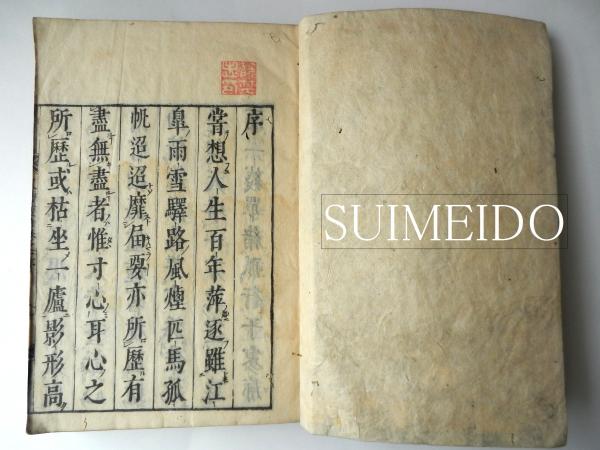 序
嘗想人生百年萍逐雖江
皐雨雪驛路風煙匹馬孤
帆迢迢靡届要亦所歷有
盡無盡者惟寸心耳心之
所歷或枯坐一廬影形高
SUIMEIDO